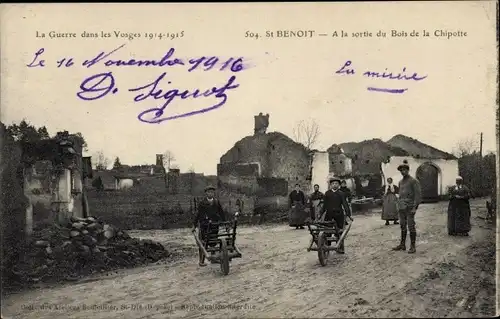 La Guerre dans les Vosges 1914-1915
504. St BENOIT — A la sortie du Bois de la Chipotte
Le 16 Novembre 1916
La misère
D. Signot